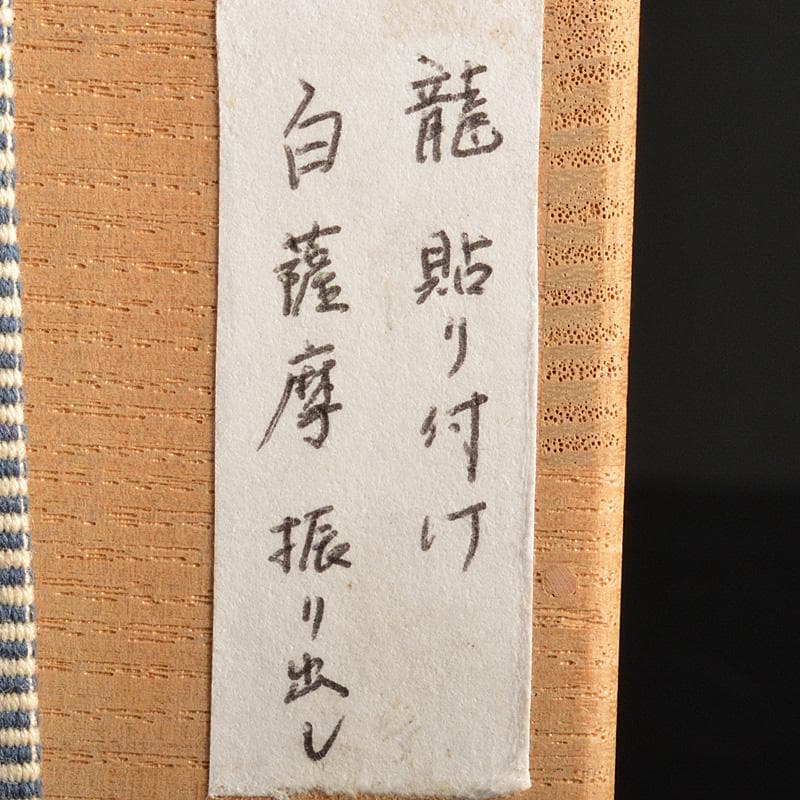 龍 貼り付け
白薩摩 振り出し